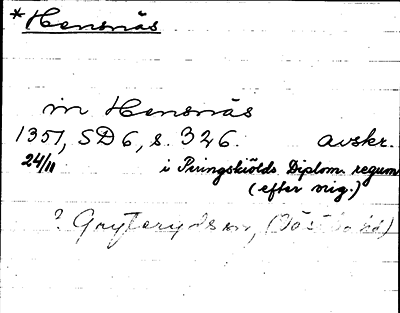 *Hensnäs
in Hensnäs
1351, SD 6, s. 326. avskr.
24/11 i Peringskiölds Diplom. regum
(efter orig.)
?